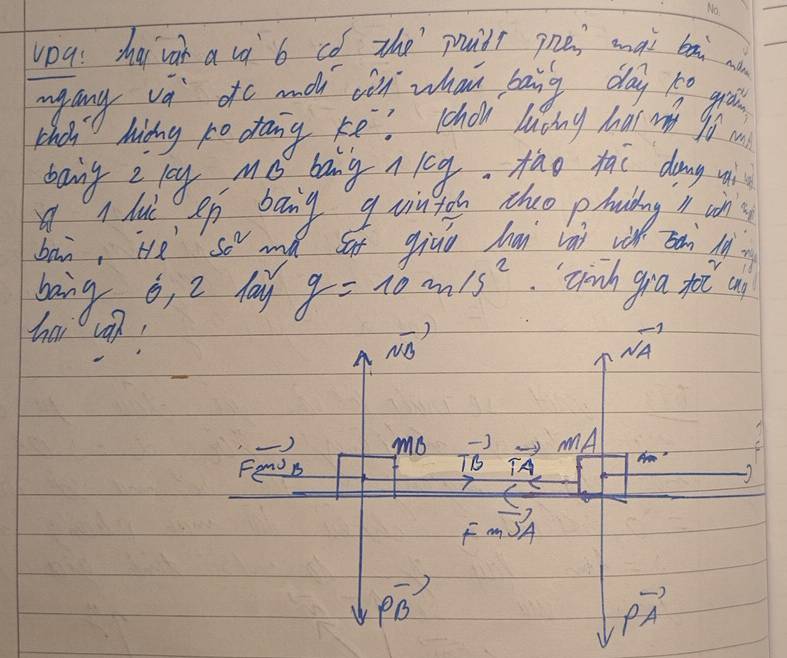 No.
VD9: hai vật a và b có thể trượt trên mặt bàn nằm
ngang và đc nối với nhau bằng dây ko giãn,
khối lượng ko đáng kể. khối lượng hai vật là mA
bằng 2 kg MB bằng 1 kg. tác dụng vào vật
a 1 lực bằng 9 viuton theo phương // với mặt
bàn. Hệ số ma sát giữa hai vật với bàn là
bằng 0,2 lấy g = 10 m/s². tính gia tốc của
hai vật!
NB NA
MB mA
FmsB TB TA F
FmsA
PB PA